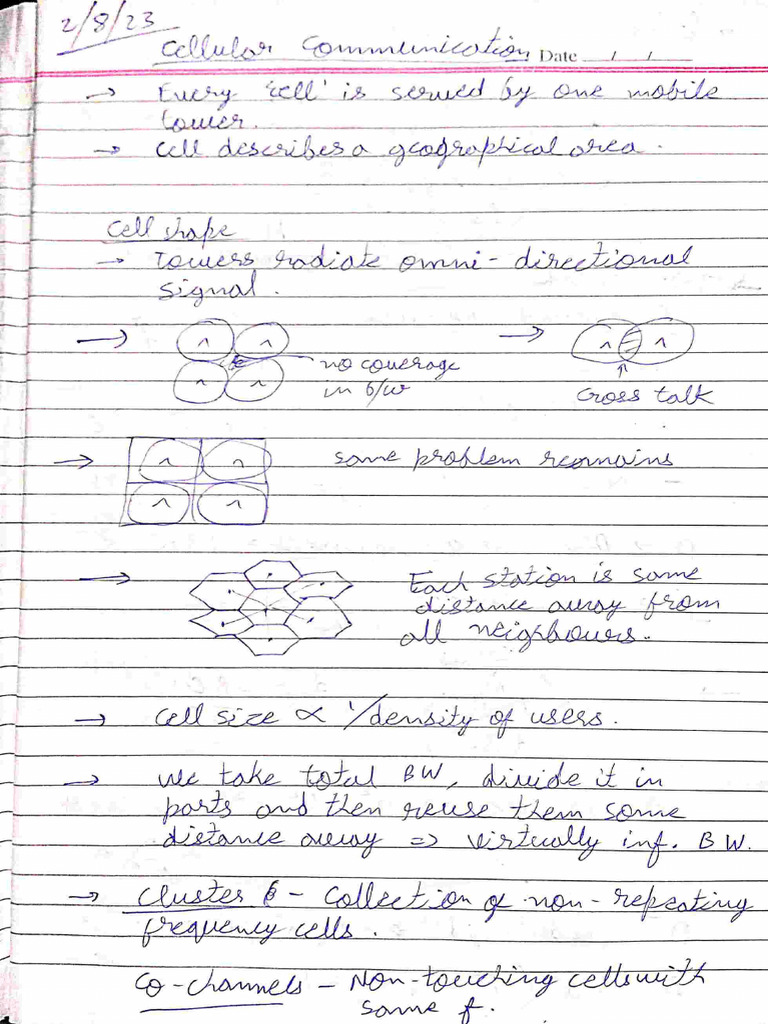 2/8/23
Cellular Communication Date / /
→ Every 'cell' is served by one mobile
tower.
→ Cell describes a geographical area.
Cell shape
→ Towers radiate omni-directional
signal.
→ no coverage
in b/w
→ Cross talk
→ same problem remains
→ Each station is same
distance away from
all neighbours.
→ Cell size ∝ 1/density of users.
→ We take total BW, divide it in
parts and then reuse them some
distance away => virtually inf. BW.
→ Cluster - Collection of non-repeating
frequency cells.
Co-channels - Non-touching cells with
same f.